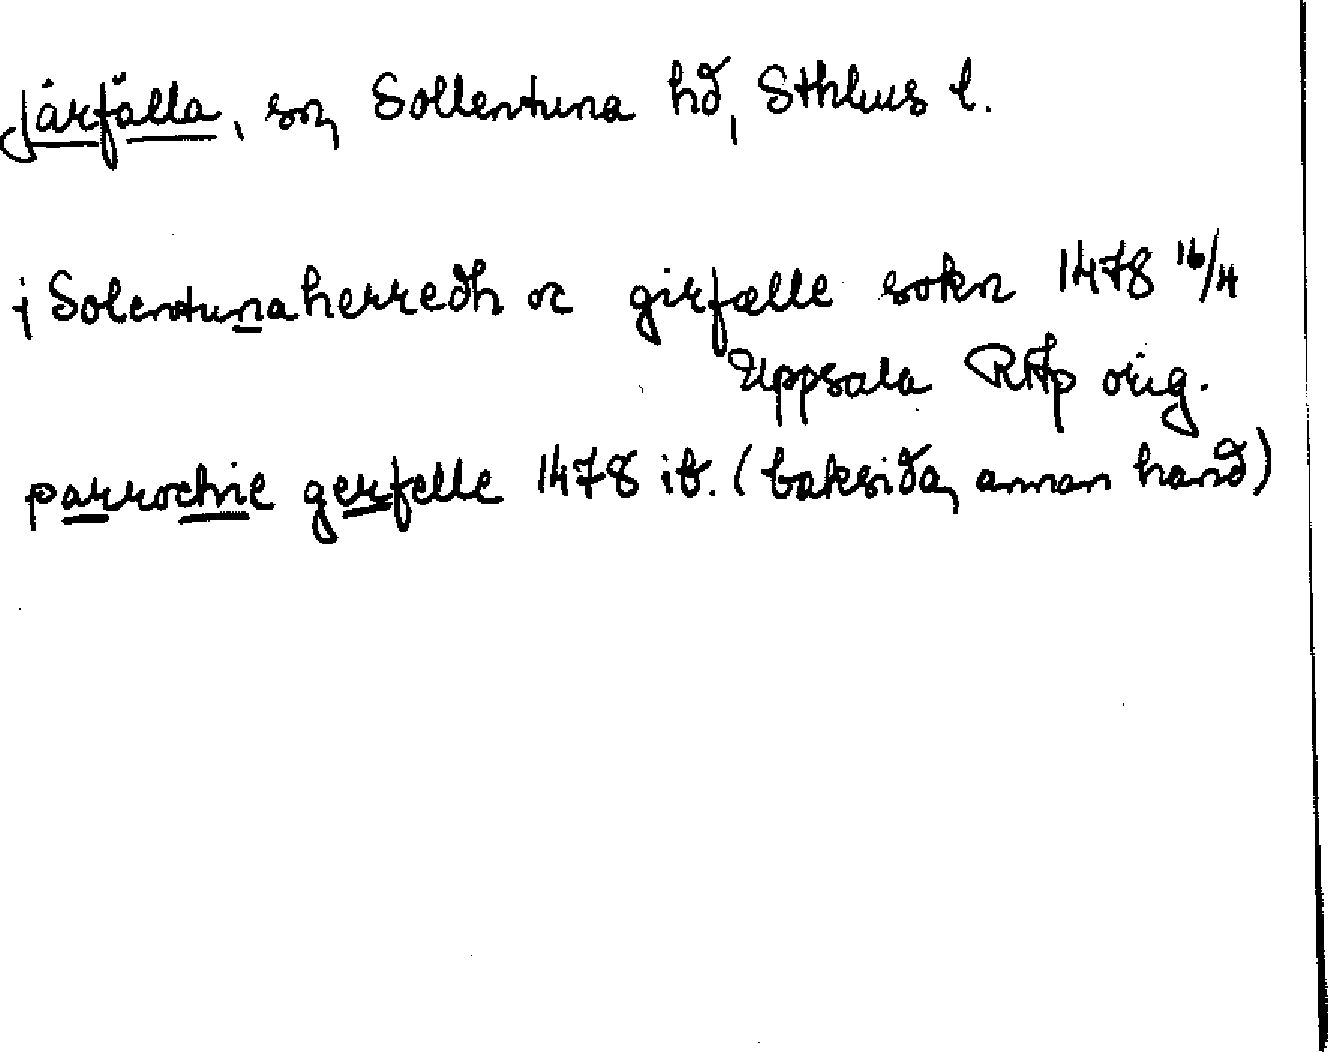 Järfälla, sn, Sollentuna hd, Sthlms l.
j Solentuna herredh oc girfælle sokn 1478 16/4
Uppsala RAp orig.
parrochie gerfelle 1478 ib. (baksida, annan hand)